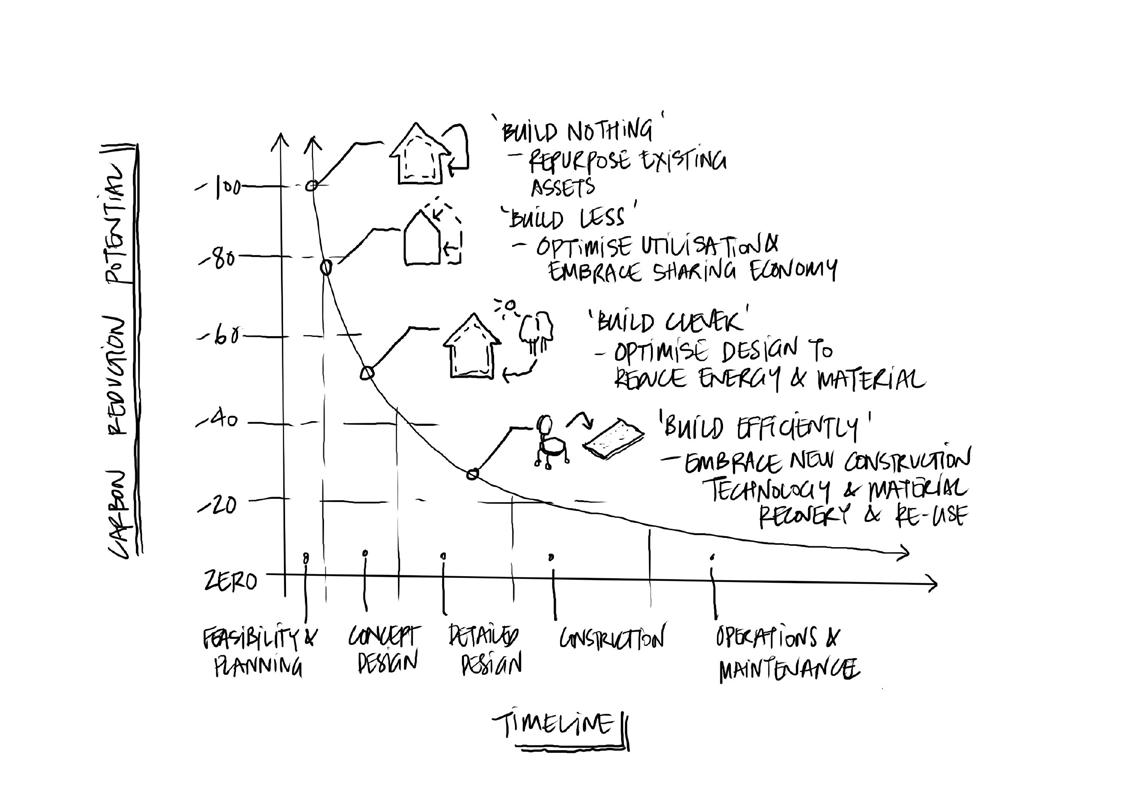 CARBON REDUCTION POTENTIAL
-100
-80
-60
-40
-20
ZERO
'BUILD NOTHING'
- REPURPOSE EXISTING
ASSETS
'BUILD LESS'
- OPTIMISE UTILISATION &
EMBRACE SHARING ECONOMY
'BUILD CLEVER'
- OPTIMISE DESIGN TO
REDUCE ENERGY & MATERIAL
'BUILD EFFICIENTLY'
- EMBRACE NEW CONSTRUCTION
TECHNOLOGY & MATERIAL
RECOVERY & RE-USE
FEASIBILITY &
PLANNING
CONCEPT
DESIGN
DETAILED
DESIGN
CONSTRUCTION
OPERATIONS &
MAINTENANCE
TIMELINE